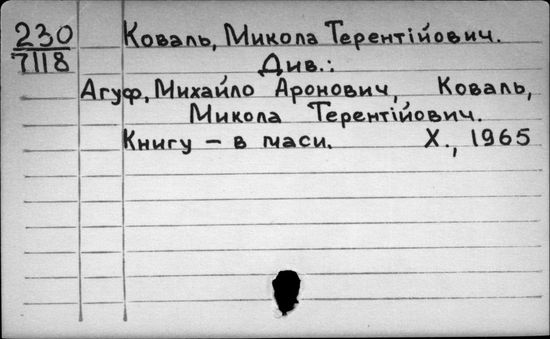 230 Коваль, Микола Терентійович.
7118 Див.:
Агуф, Михайло Аронович, Коваль,
Микола Терентійович.
Книгу – в маси. Х., 1965